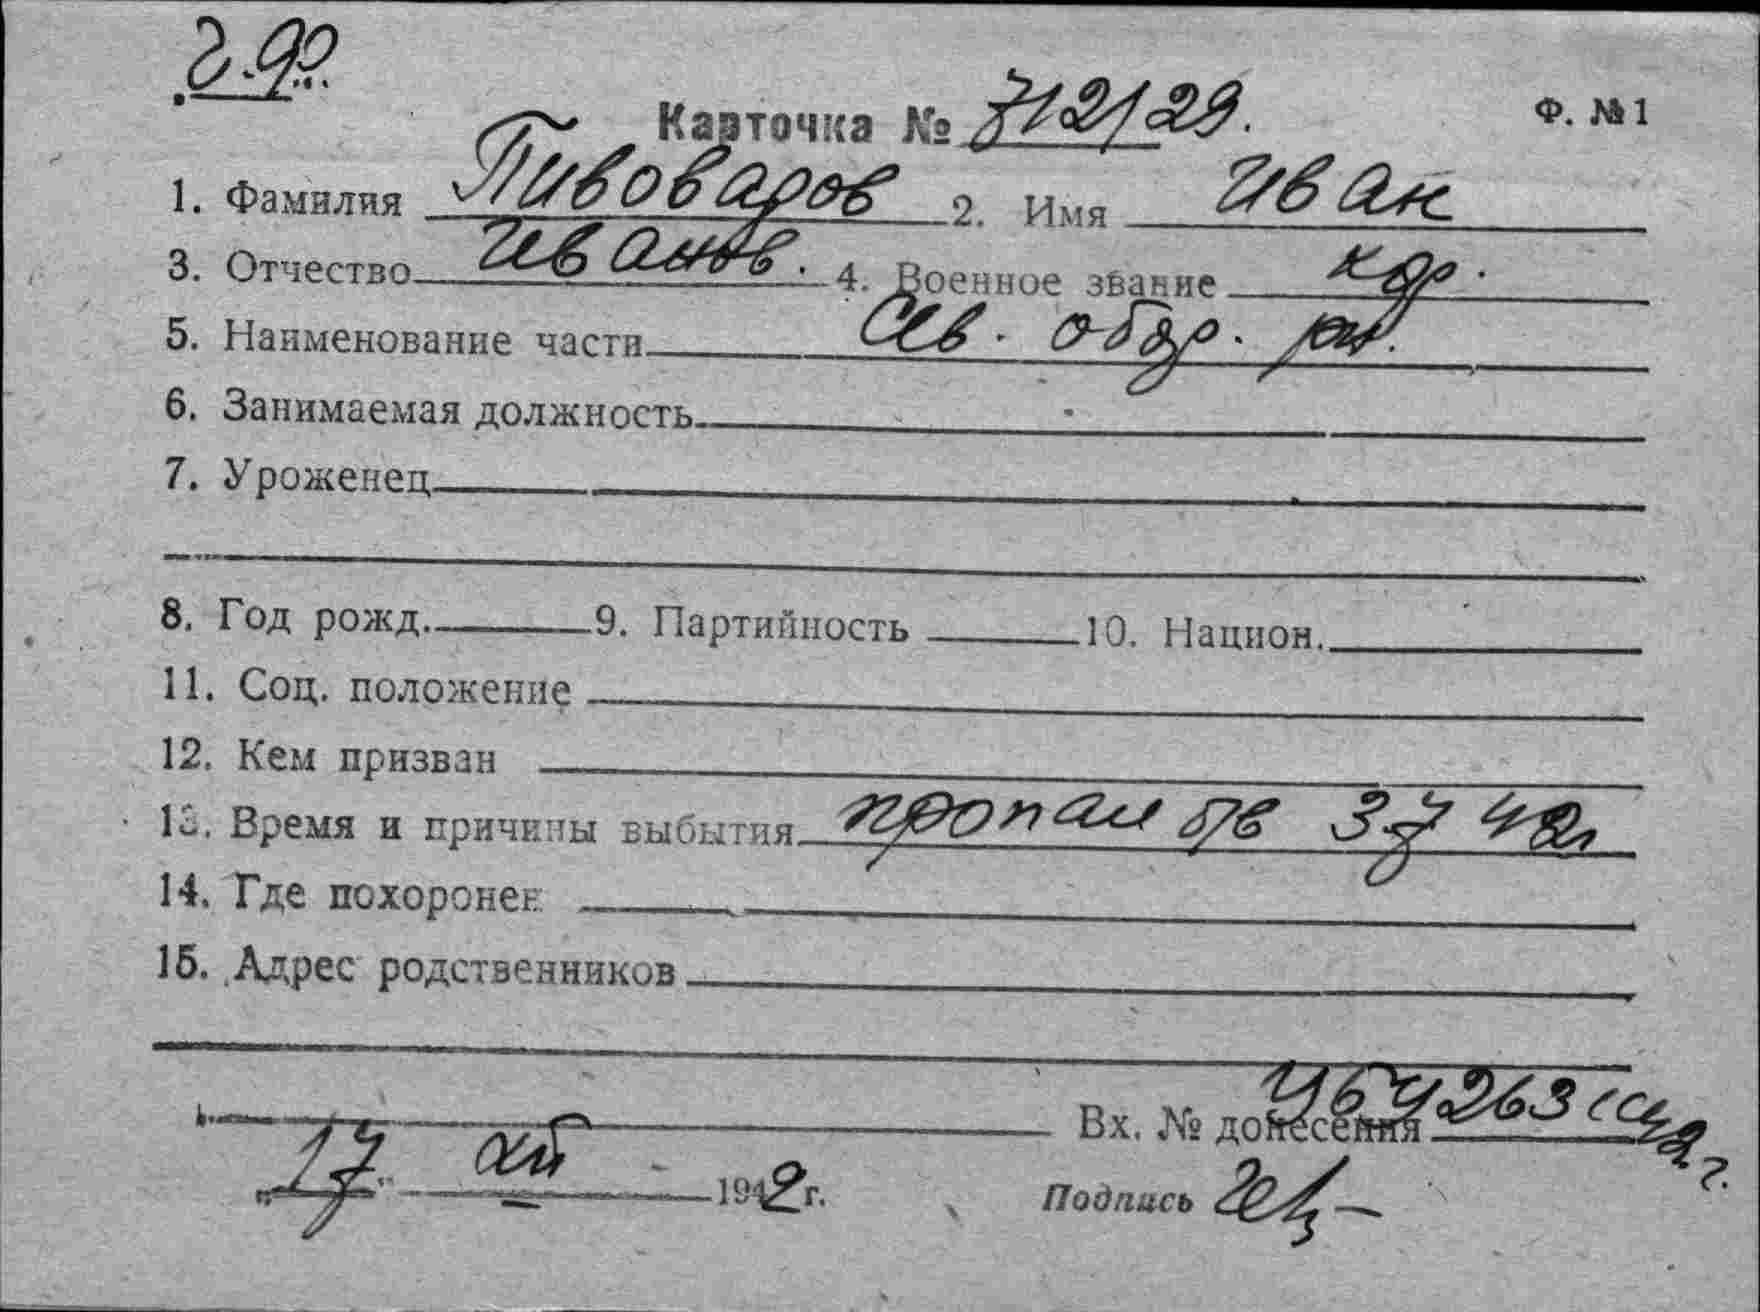 Карточка № 712/29. Ф. №1
1. Фамилия Пивоваров 2. Имя Иван
3. Отчество Иванов. 4. Военное звание кр.
5. Наименование части Сев.
6. Занимаемая должность
7. Уроженец
8. Год рожд. 9. Партийность 10. Национ.
11. Соц. положение
12. Кем призван
13. Время и причины выбытия пропал б/в 3/7 42г
14. Где похоронен
15. Адрес родственников
Вх. № донесения
„17“ 1942 г.
Подпись